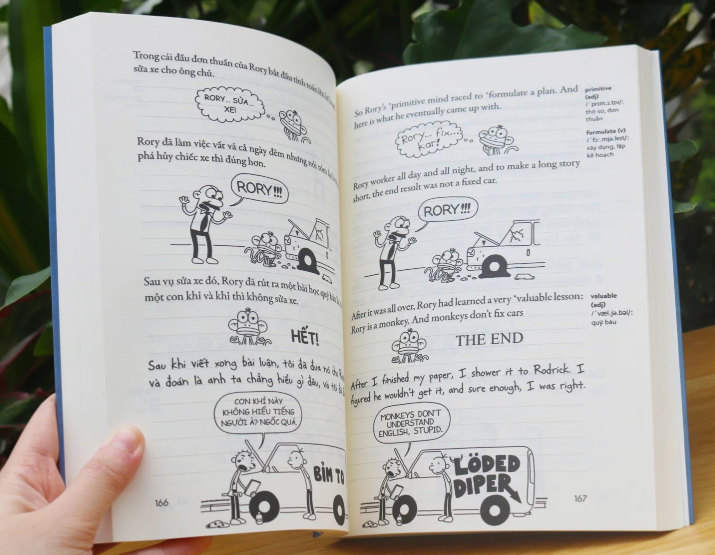 Trong cái đầu đơn thuần của Rory bắt đầu tính toán
sửa xe cho ông chủ.
RORY... SỬA...
XE!
Rory đã làm việc vất vả cả ngày đêm nhưng nói
phá hủy chiếc xe thì đúng hơn.
RORY!!!
Sau vụ sửa xe đó, Rory đã rút ra một bài học quý
một con khỉ và khỉ thì không sửa xe.
HẾT!
Sau khi viết xong bài luận, tôi đã đưa nó cho
và đoán là anh ta chẳng hiểu gì đâu, và tôi đã
CON KHỈ NÀY
KHÔNG HIỂU TIẾNG
NGƯỜI À? NGỐC QUÁ.
BỈM TO
166
So Rory's *primitive mind raced to *formulate a plan. And
here is what he eventually came up with.
Rory... fix...
kar!
Rory worker all day and all night, and to make a long story
short, the end result was not a fixed car.
RORY!!!
After it was all over, Rory had learned a very *valuable lesson:
Rory is a monkey. And monkeys don't fix cars
THE END
After I finished my paper, I shower it to Rodrick. I
figured he wouldn't get it, and sure enough, I was right.
MONKEYS DON'T
UNDERSTAND
ENGLISH, STUPID.
LÖDED
DIPER
167
primitive
(adj)
thô sơ, đơn
thuần
formulate (v)
xây dựng, lập
kế hoạch
valuable
(adj)
/ˈvæl.jə.bəl/:
quý báu